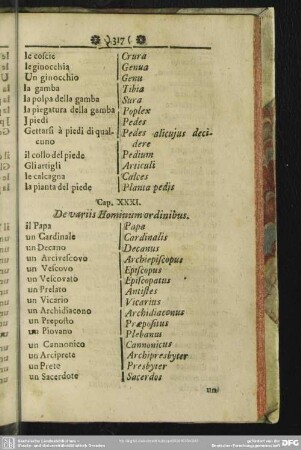 ) 317 (
le coscie Crura
le ginocchia Genua
Un ginocchio Genu
la gamba Tibia
la polpa della gamba Sura
la piegatura della gamba Poplex
I piedi Pedes
Gettarsi à piedi di qual- Pedes alicujus deci-
cuno dere
il collo del piede Pedium
Gli artigli Articuli
le calcagna Calces
la pianta del piede Planta pedis
Cap. XXXI.
De variis Hominum ordinibus.
il Papa Papa
un Cardinale Cardinalis
un Decano Decanus
un Arcivescovo Archiepiscopus
un Vescovo Episcopus
un Vescovato Episcopatus
un Prelato Antistes
un Vicario Vicarius
un Archidiacono Archidiaconus
un Preposto Præpositus
un Piovano Plebanus
un Cannonico Cannonicus
un Arcipreta Archipresbyter
un Prete Presbyter
un Sacerdote Sacerdos
un